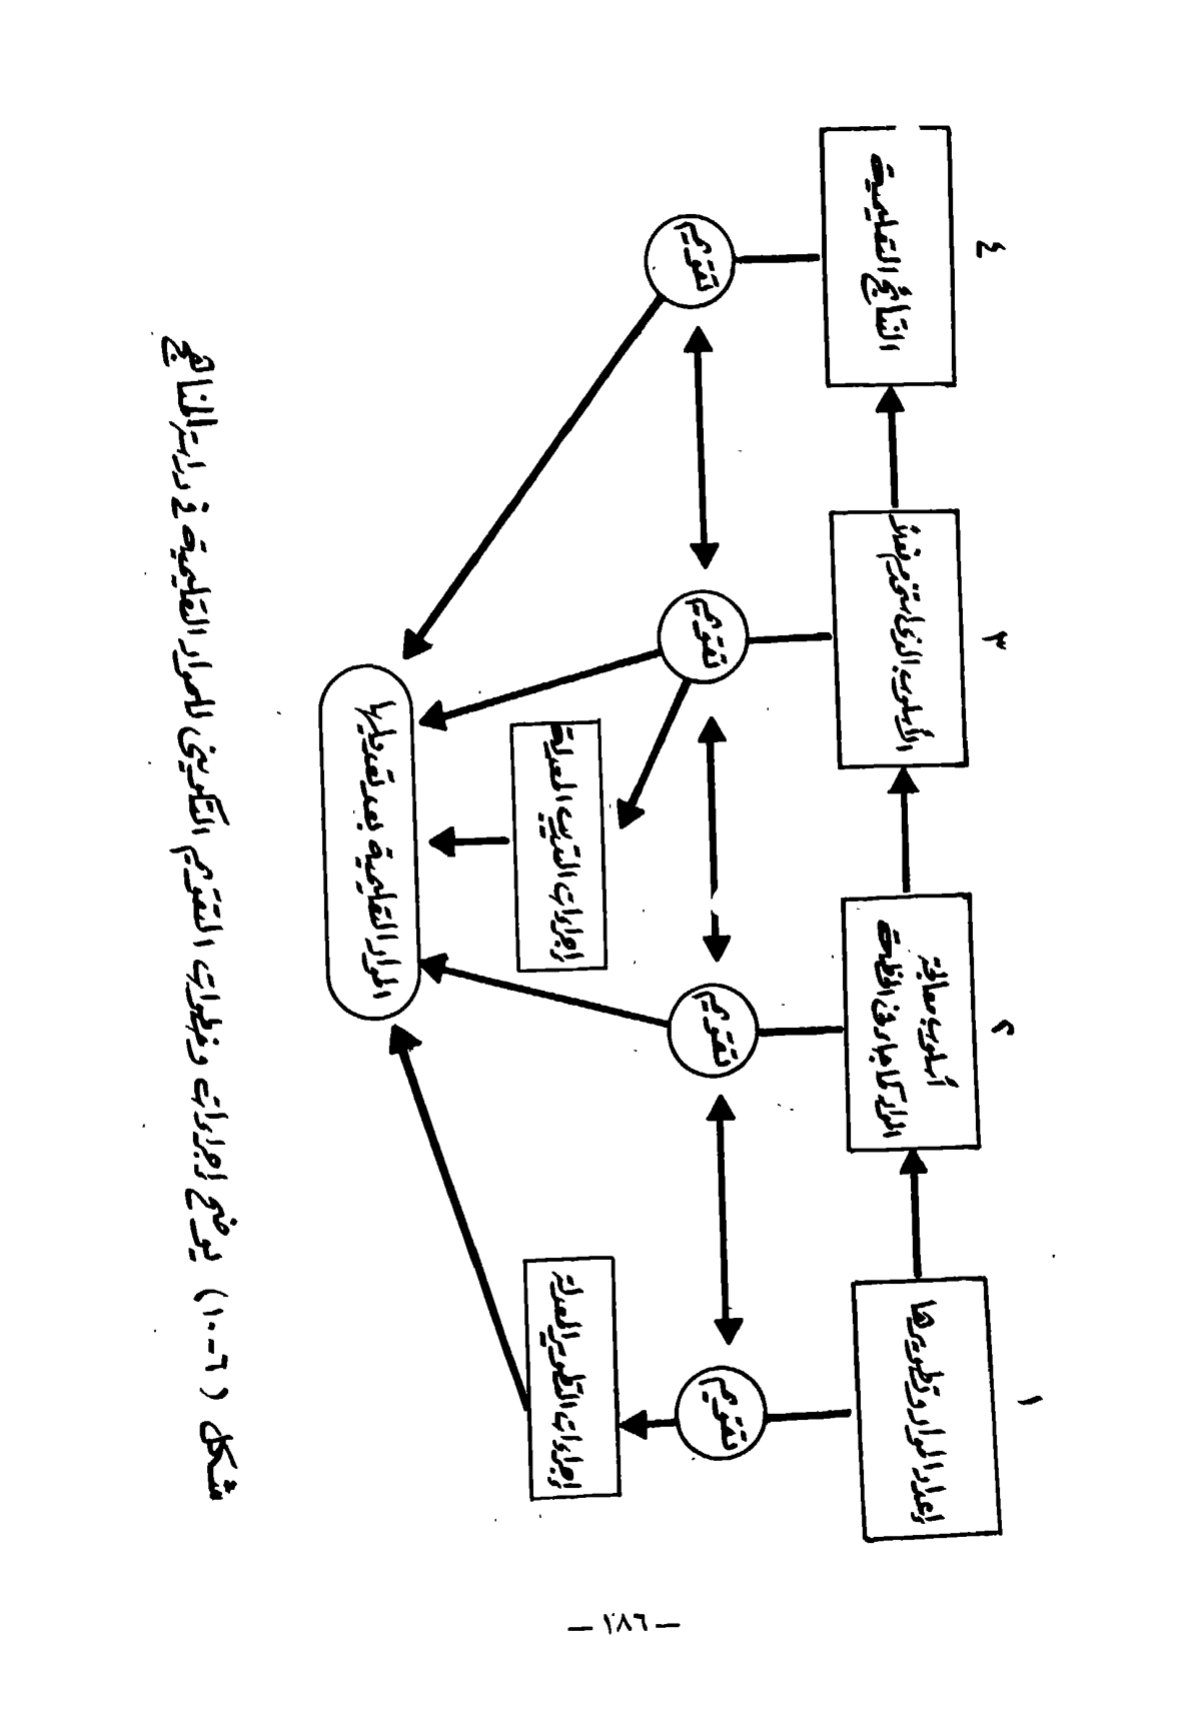 ١
إعداد المواد وتطويرها
٢
أسلوب معالجة
المواد كما جاء في الخطة
٣
الأسلوب الذي استخدم فعلاً
٤
النتائج التعليمية
تقويم
تقويم
تقويم
تقويم
إجراءات التطوير المعدلة
إجراءات التدريب المعدلة
المواد التعليمية بعد تعديلها
شكل (٦-١٠) يوضح إجراءات وخطوات التقويم التكويني للمواد التعليمية في المناهج
— ١٨٦ —